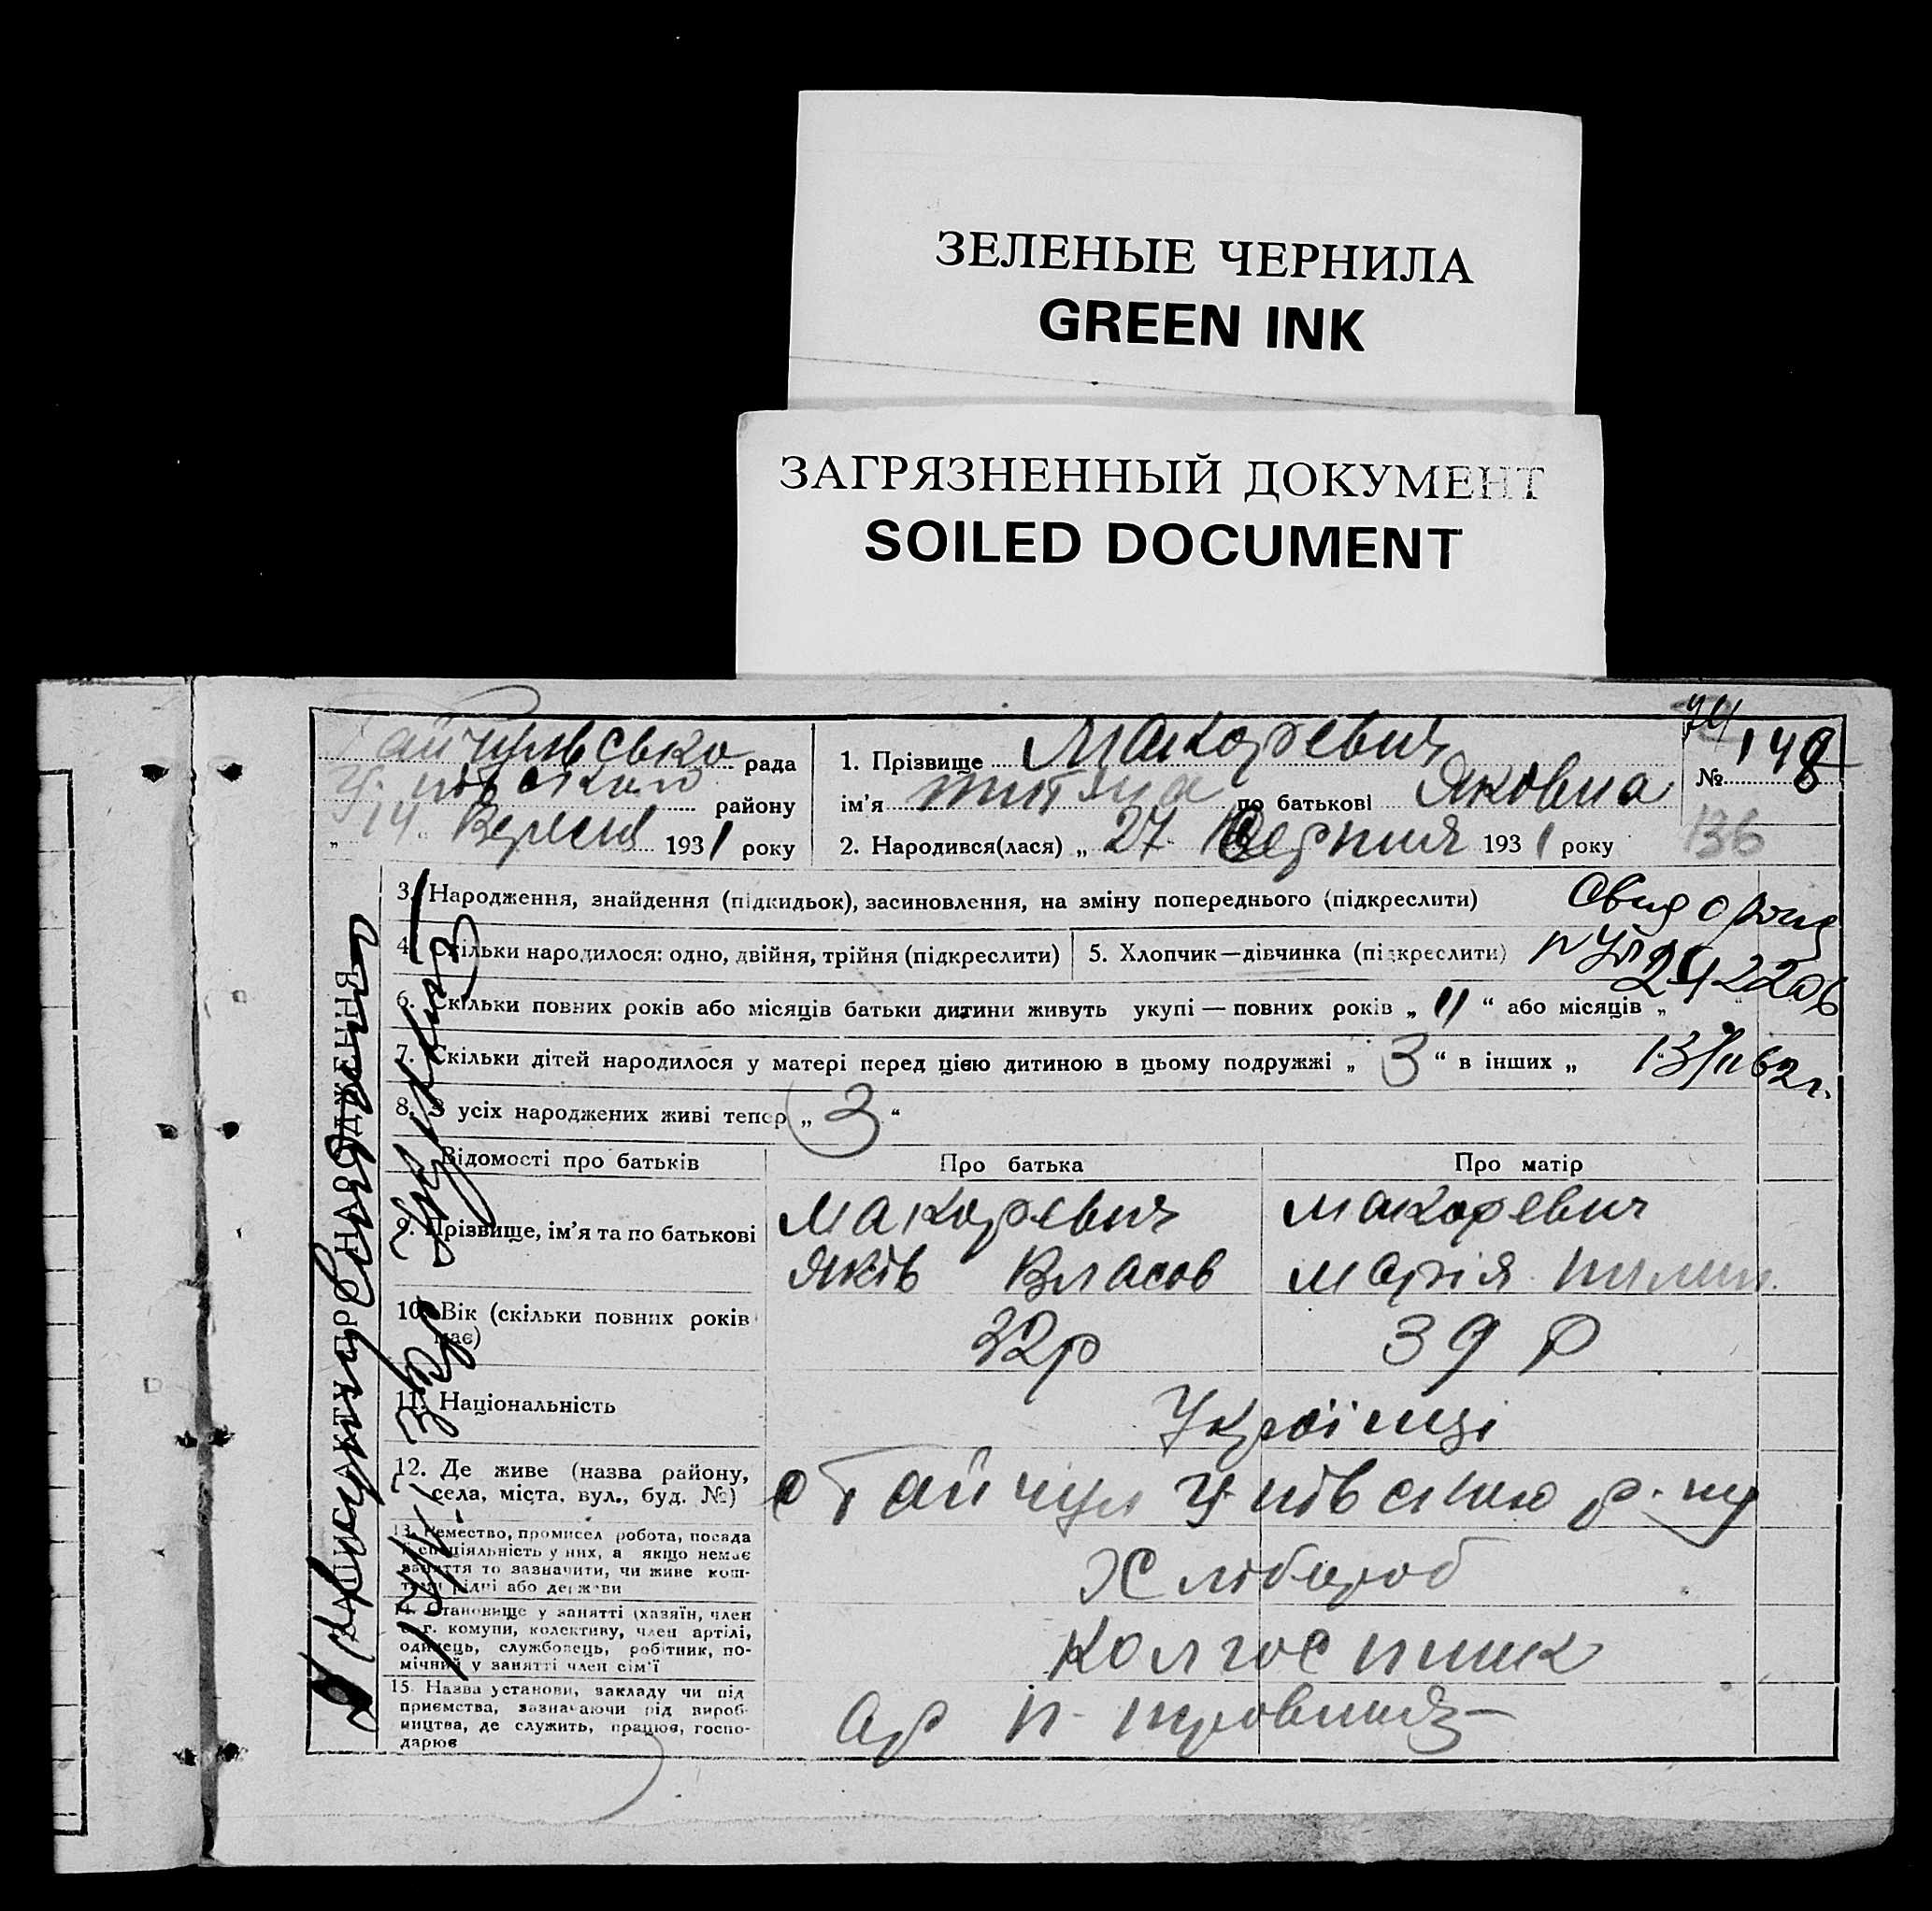 ЗЕЛЕНЫЕ ЧЕРНИЛА
GREEN INK
ЗАГРЯЗНЕННЫЙ ДОКУМЕНТ
SOILED DOCUMENT
Гайчулвсько рада
району
„14“ Вересня 1931 року
1. Прізвище Макоревич
ім’я титяна по батькові Яковна
2. Народився(лася) „27 Серпня 1931 року
№ 148
136
ЗАПИС АКТУ ПРО НАРОДЖЕННЯ
3. Народження, знайдення (підкидьок), засиновлення, на зміну попереднього (підкреслити)
4. Скільки народилося: одно, двійня, трійня (підкреслити)
5. Хлопчик—дівчинка (підкреслити)
6. Скільки повних років або місяців батьки дитини живуть укупі — повних років „ 11 “ або місяців „
7. Скільки дітей народилося у матері перед цією дитиною в цьому подружжі „ 3 “ в інших „
13/II 62г.
8. З усіх народжених живі тепер „ 3 “
Відомості про батьків
Про батька
Про матір
9. Прізвище, ім’я та по батькові
Макоревич
Яків Власов
Макоревич
Марія Пилип.
10. Вік (скільки повних років має)
32р
39 р
11. Національність
Українці
12. Де живе (назва району,
села, міста, вул., буд. №)
с Гайчул
13. Ремество, промисел робота, посада
й спеціяльність у них, а якщо немає
заняття то зазначити, чи живе кош-
тами рідні або держави
Хлібороб
14. Становище у занятті (хазяїн, член
с.-г. комуни, колективу, член артілі,
одинець, службовець, робітник, по-
мічний у занятті член сім’ї
Колгоспник
15. Назва установи, закладу чи під
приємства, зазначаючи рід вироб-
ництва, де служить, працює, госпо-
дарює